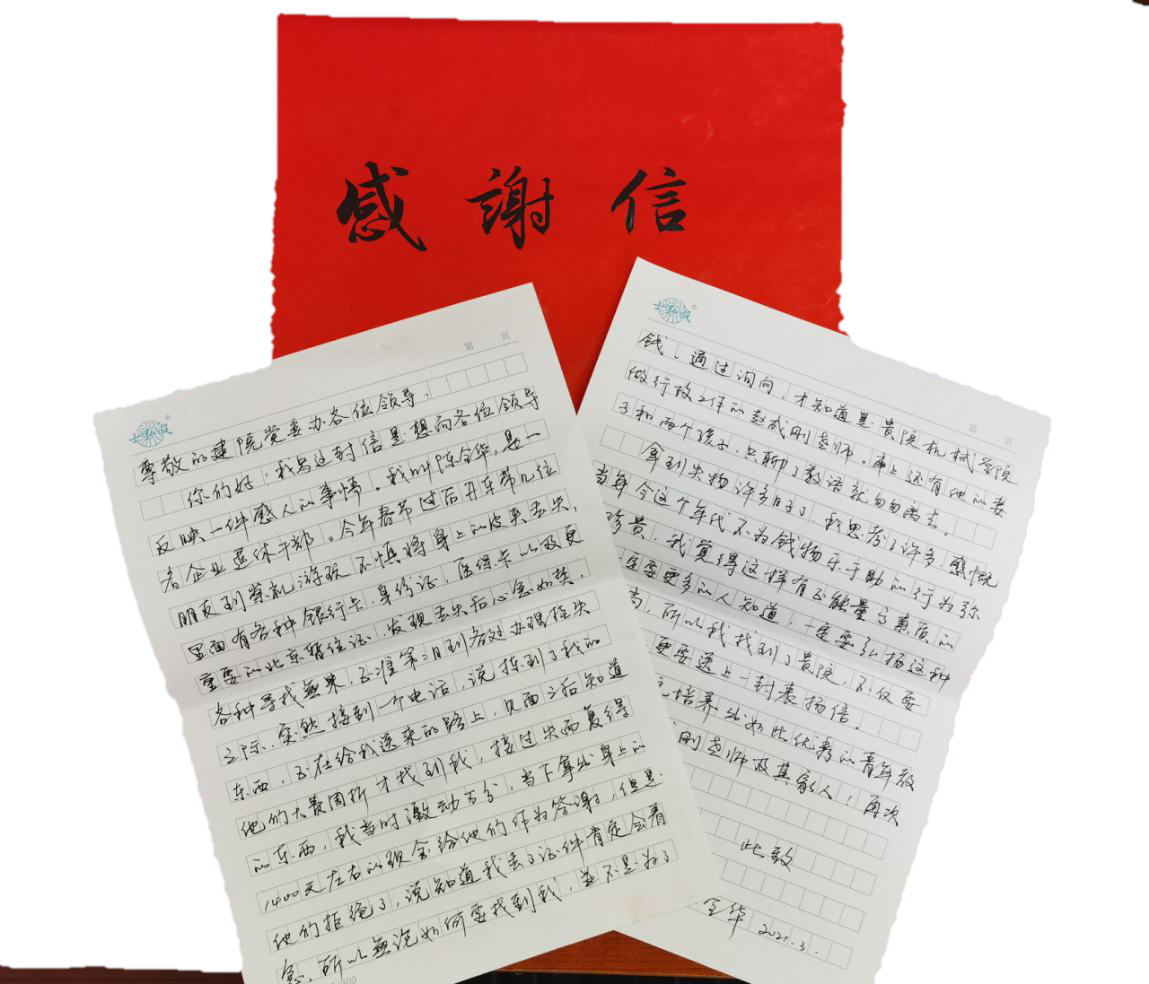 感謝信
第 页
尊敬的建院党委办各位领导：
你们好，我写这封信是想向各位领导
反映一件感人的事情。我叫陈全华，是一
老企业退休干部。今年春节过后开车带几位
朋友到崇礼游玩不慎将身上的皮夹丢失，
里面有各种银行卡、身份证，医保卡以及更
重要的北京暂住证，发现丢失后心急如焚，
各种寻找無果，正准备二月到各处办理挂失
之际，突然接到一个电话，说拣到了我的
东西，正在给我送来的路上，见面之后知道
他们大费周折才找到我，接过失而复得
的东西，我当时激动万分，当下拿出身上的
1400元左右的现金给他们作为答谢，但是
他们拒绝了，说知道我丢了证件肯定会着
急，所以無论如何要找到我，並不是为了
第 页
钱，通过询问，才知道是贵院机械学院
做行政工作的赵成刚老师。车上还有他的妻
子和两个孩子，只聊了数语就匆匆离去。
拿到失物许多日子了，我思考了许多，感慨
当年今这个年代不为钱物乐于助的行为弥
珍贵，我覚得这样有正能量高素质的
定要更多的人知道，一定要弘扬这种
尚，所以我找到了贵院，不仅要
更要送上一封表扬信。
培养出如此优秀的青年教
刚老师及其家人！再次
此致
全华 2021.3.